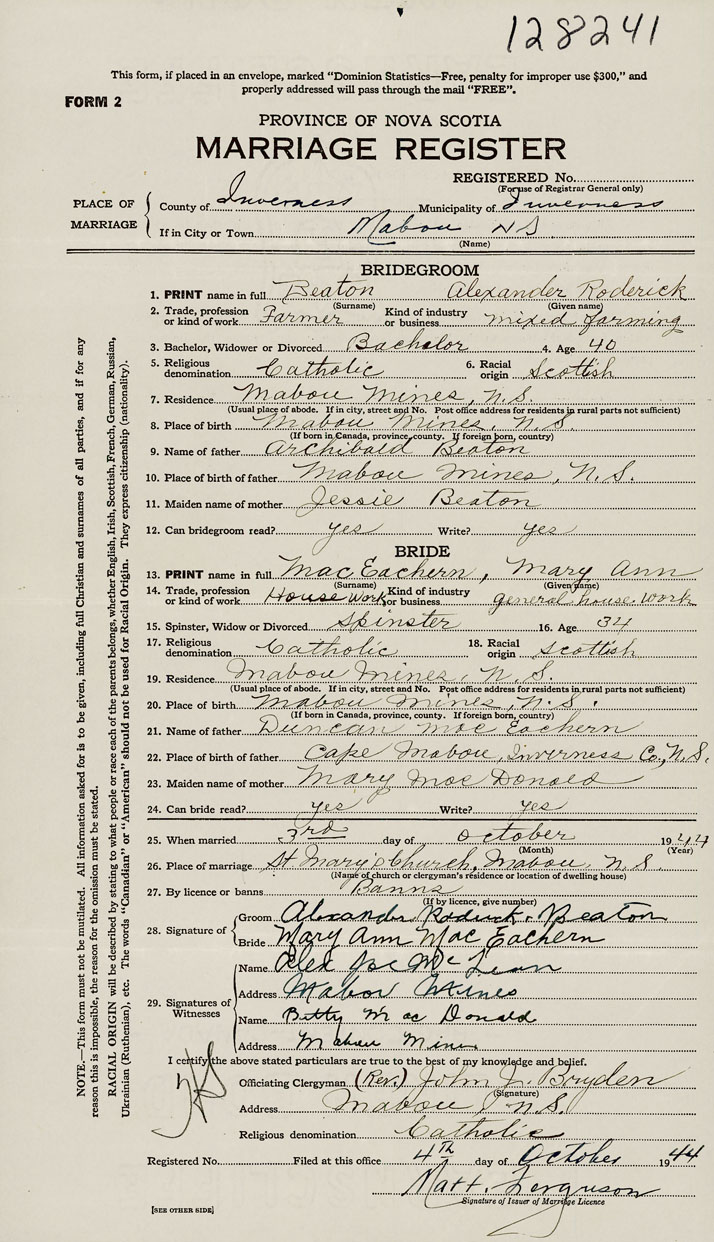 128241
This form, if placed in an envelope, marked “Dominion Statistics—Free, penalty for improper use $300,” and
properly addressed will pass through the mail “FREE”.
FORM 2
PROVINCE OF NOVA SCOTIA
MARRIAGE REGISTER
REGISTERED No.
(For use of Registrar General only)
PLACE OF MARRIAGE
County of Inverness Municipality of Inverness
If in City or Town Mabou NS
(Name)
BRIDEGROOM
1. PRINT name in full Beaton Alexander Roderick
(Surname) (Given name)
2. Trade, profession or kind of work Farmer Kind of industry or business mixed farming
3. Bachelor, Widower or Divorced Bachelor 4. Age 40
5. Religious denomination Catholic 6. Racial origin Scottish
7. Residence Mabou Mines, N.S.
(Usual place of abode. If in city, street and No. Post office address for residents in rural parts not sufficient)
8. Place of birth Mabou Mines, N.S.
(If born in Canada, province, county. If foreign born, country)
9. Name of father Archibald Beaton
10. Place of birth of father Mabou Mines, N.S.
11. Maiden name of mother Jessie Beaton
12. Can bridegroom read? yes Write? yes
BRIDE
13. PRINT name in full MacEachern, Mary Ann
(Surname) (Given name)
14. Trade, profession or kind of work House work Kind of industry or business general house work
15. Spinster, Widow or Divorced Spinster 16. Age 34
17. Religious denomination Catholic 18. Racial origin Scottish
19. Residence Mabou Mines, N.S.
(Usual place of abode. If in city, street and No. Post office address for residents in rural parts not sufficient)
20. Place of birth Mabou Mines, N.S.
(If born in Canada, province, county. If foreign born, country)
21. Name of father Duncan Mac Eachern
22. Place of birth of father Cape Mabou, Inverness Co., N.S.
23. Maiden name of mother Mary Mac Donald
24. Can bride read? yes Write? yes
25. When married 3rd day of October 1944
(Month) (Year)
26. Place of marriage St. Mary's Church, Mabou, N.S.
(Name of church or clergyman's residence or location of dwelling house)
27. By licence or banns Banns
(If by licence, give number)
28. Signature of
Groom Alexander Roderick Beaton
Bride Mary Ann Mac Eachern
29. Signatures of Witnesses
Name Alex Joe Mc Lean
Address Mabou Mines
Name Betty Mac Donald
Address Mabou Mines
I certify the above stated particulars are true to the best of my knowledge and belief.
Officiating Clergyman (Rev.) John L. Bryden
(Signature)
Address Mabou, N.S.
Religious denomination Catholic
Registered No. Filed at this office 4th day of October 1944
Matt. Ferguson
Signature of Issuer of Marriage Licence
[SEE OTHER SIDE]
NOTE.—This form must not be mutilated. All information asked for is to be given, including full Christian and surnames of all parties, and if for any
reason this is impossible, the reason for the omission must be stated.
RACIAL ORIGIN will be described by stating to what people or race each of the parents belongs, whether English, Irish, Scottish, French, German, Russian,
Ukrainian (Ruthenian), etc. The words “Canadian” or “American” should not be used for Racial Origin. They express citizenship (nationality).